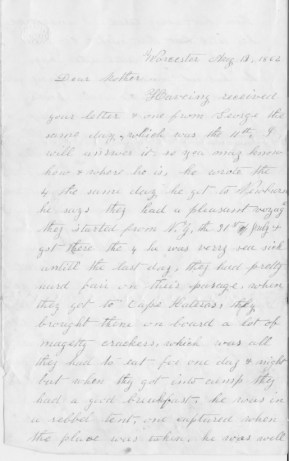 Worcester Aug, 13, 1862
Dear Mother
Haveing received
your letter & one from George the
same day, which was the 10th, I
will answer it so you may know
how & where he is, he wrote the
4 the same day he got to Newbern
he says they had a pleasant voyag
they started from N.Y, the 31st of July &
got there the 4 he was verry sea sick
untill the last day, they had pretty
hard fair on their passage, when
they got to Cape Hateras, they
brought them on board a lot of
magetty crackers, which was all
they had to eat for one day & night
but when they got into camp they
had a good breakfast, he was in
a rebbel tent, one captured when
the place was taken, he was well